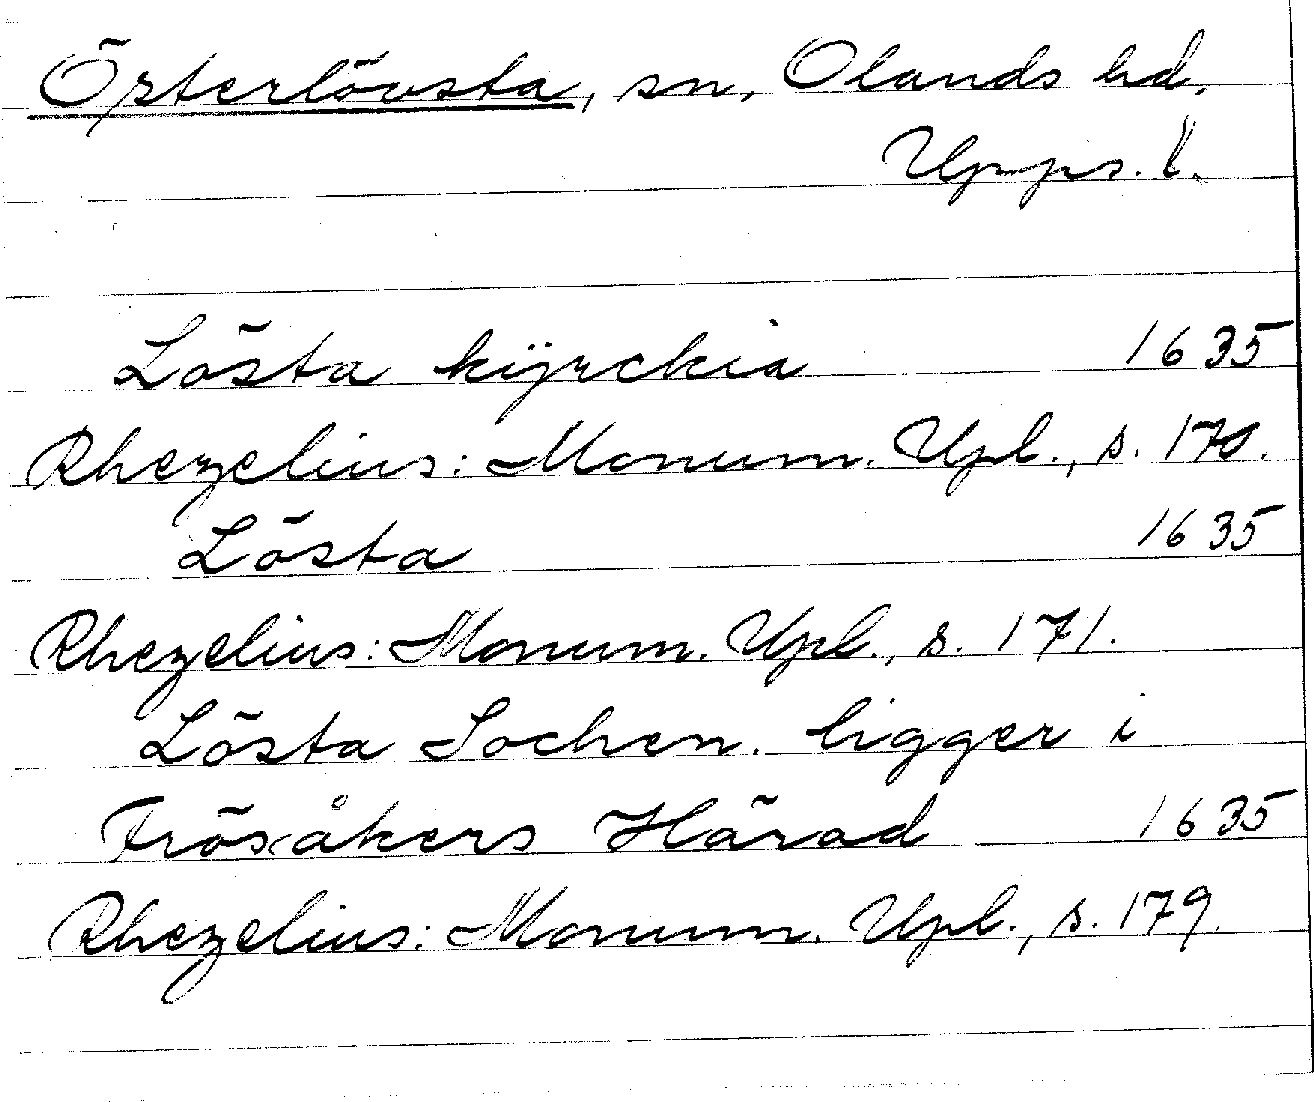 Österlövsta, sn, Olands hd,
Upps. l.
Lösta kÿrckia 1635
Rhezelius: Monum. Upl., s. 170.
Lösta 1635
Rhezelius: Monum. Upl., s. 171.
Lösta Sochen. ligger i
Frösåkers Härad 1635
Rhezelius: Monum. Upl., s. 179.